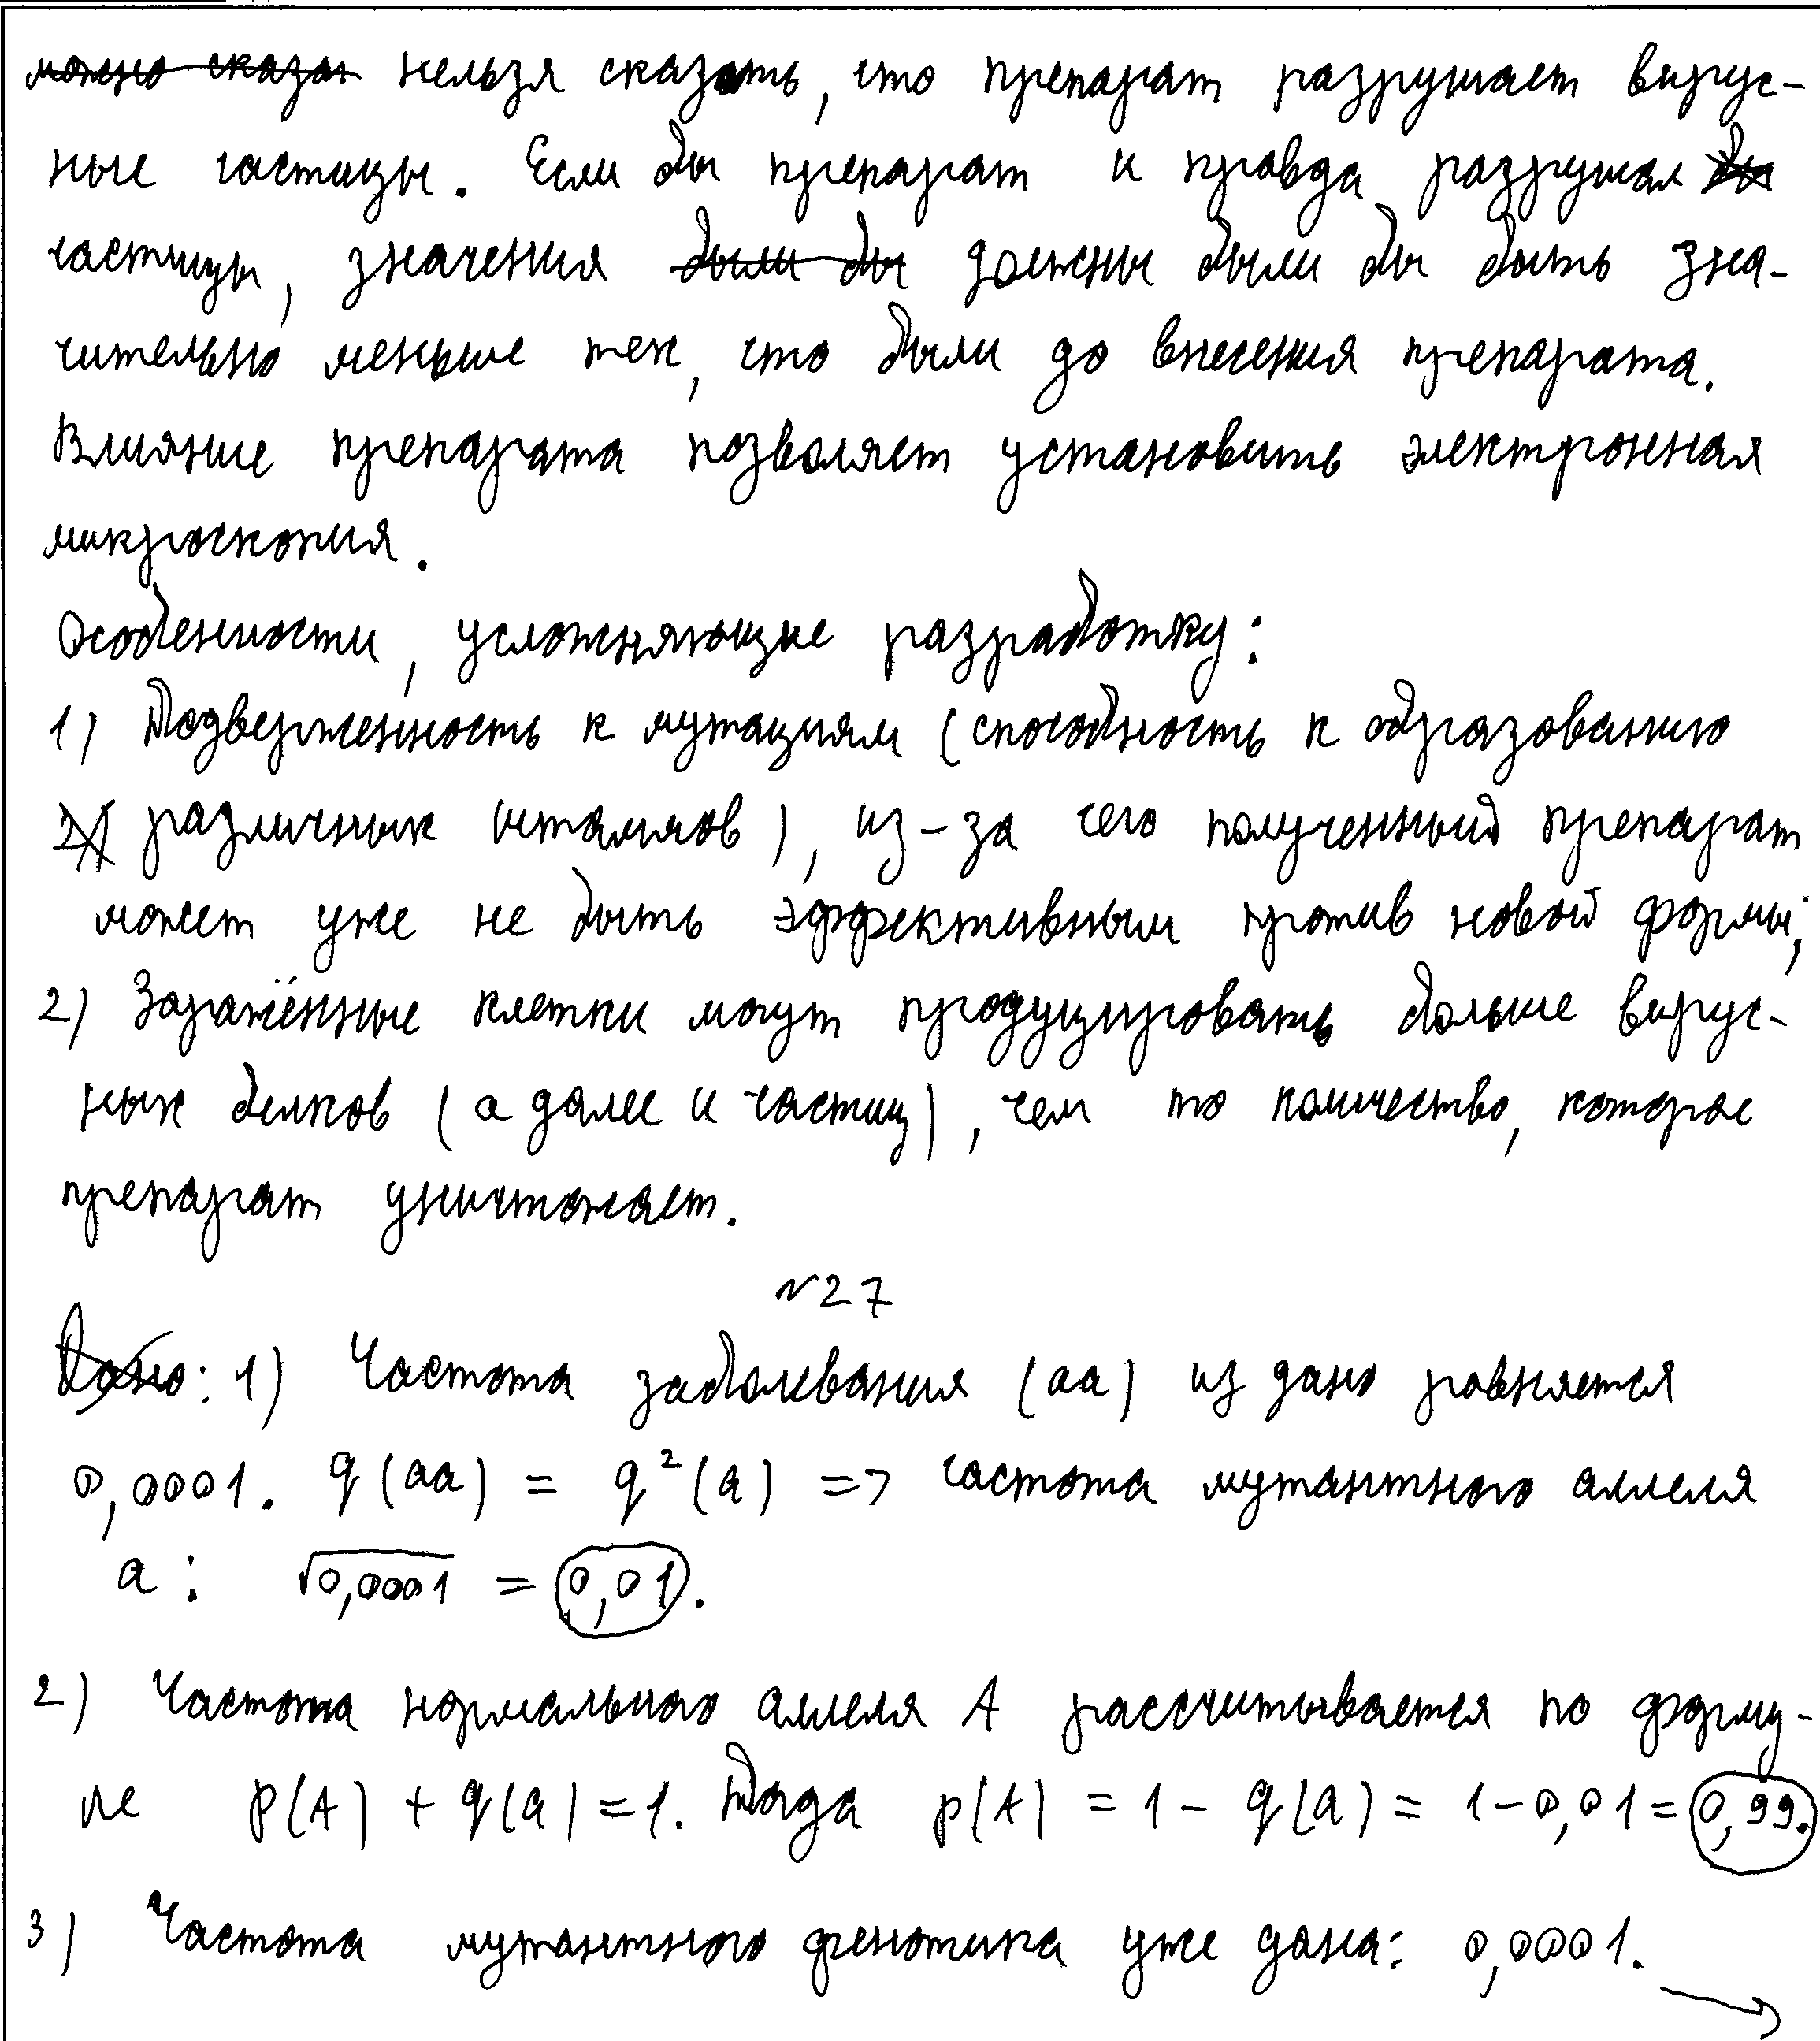 можно сказат нельзя сказать, что препарат разрушает вирус-
ные частицы. Если бы препарат и правда разрушал бы
частицы, значения были бы должны были бы быть зна-
чительно меньше тех, что были до внесения препарата.
Влияние препарата позволяет установить электронная
микроскопия.
Особенности, усложняющие разработку:
1) Подверженность к мутациям (способность к образованию
2) различных штаммов), из-за чего полученный препарат
может уже не быть эффективным против новой формы;
2) Заражённые клетки могут продуцировать больше вирус-
ных белков (а далее и частиц), чем то количество, которое
препарат уничтожает.
№27
Дано: 1) Частота заболевания (аа) из дано равняется
0,0001. q(аа) = q²(а) => частота мутантного аллеля
а: √0,0001 = 0,01.
2) Частота нормального аллеля А рассчитывается по форму-
ле p(А) + q(а) = 1. Тогда p(А) = 1 - q(а) = 1 - 0,01 = 0,99.
3) Частота мутантного фенотипа уже дана: 0,0001. →